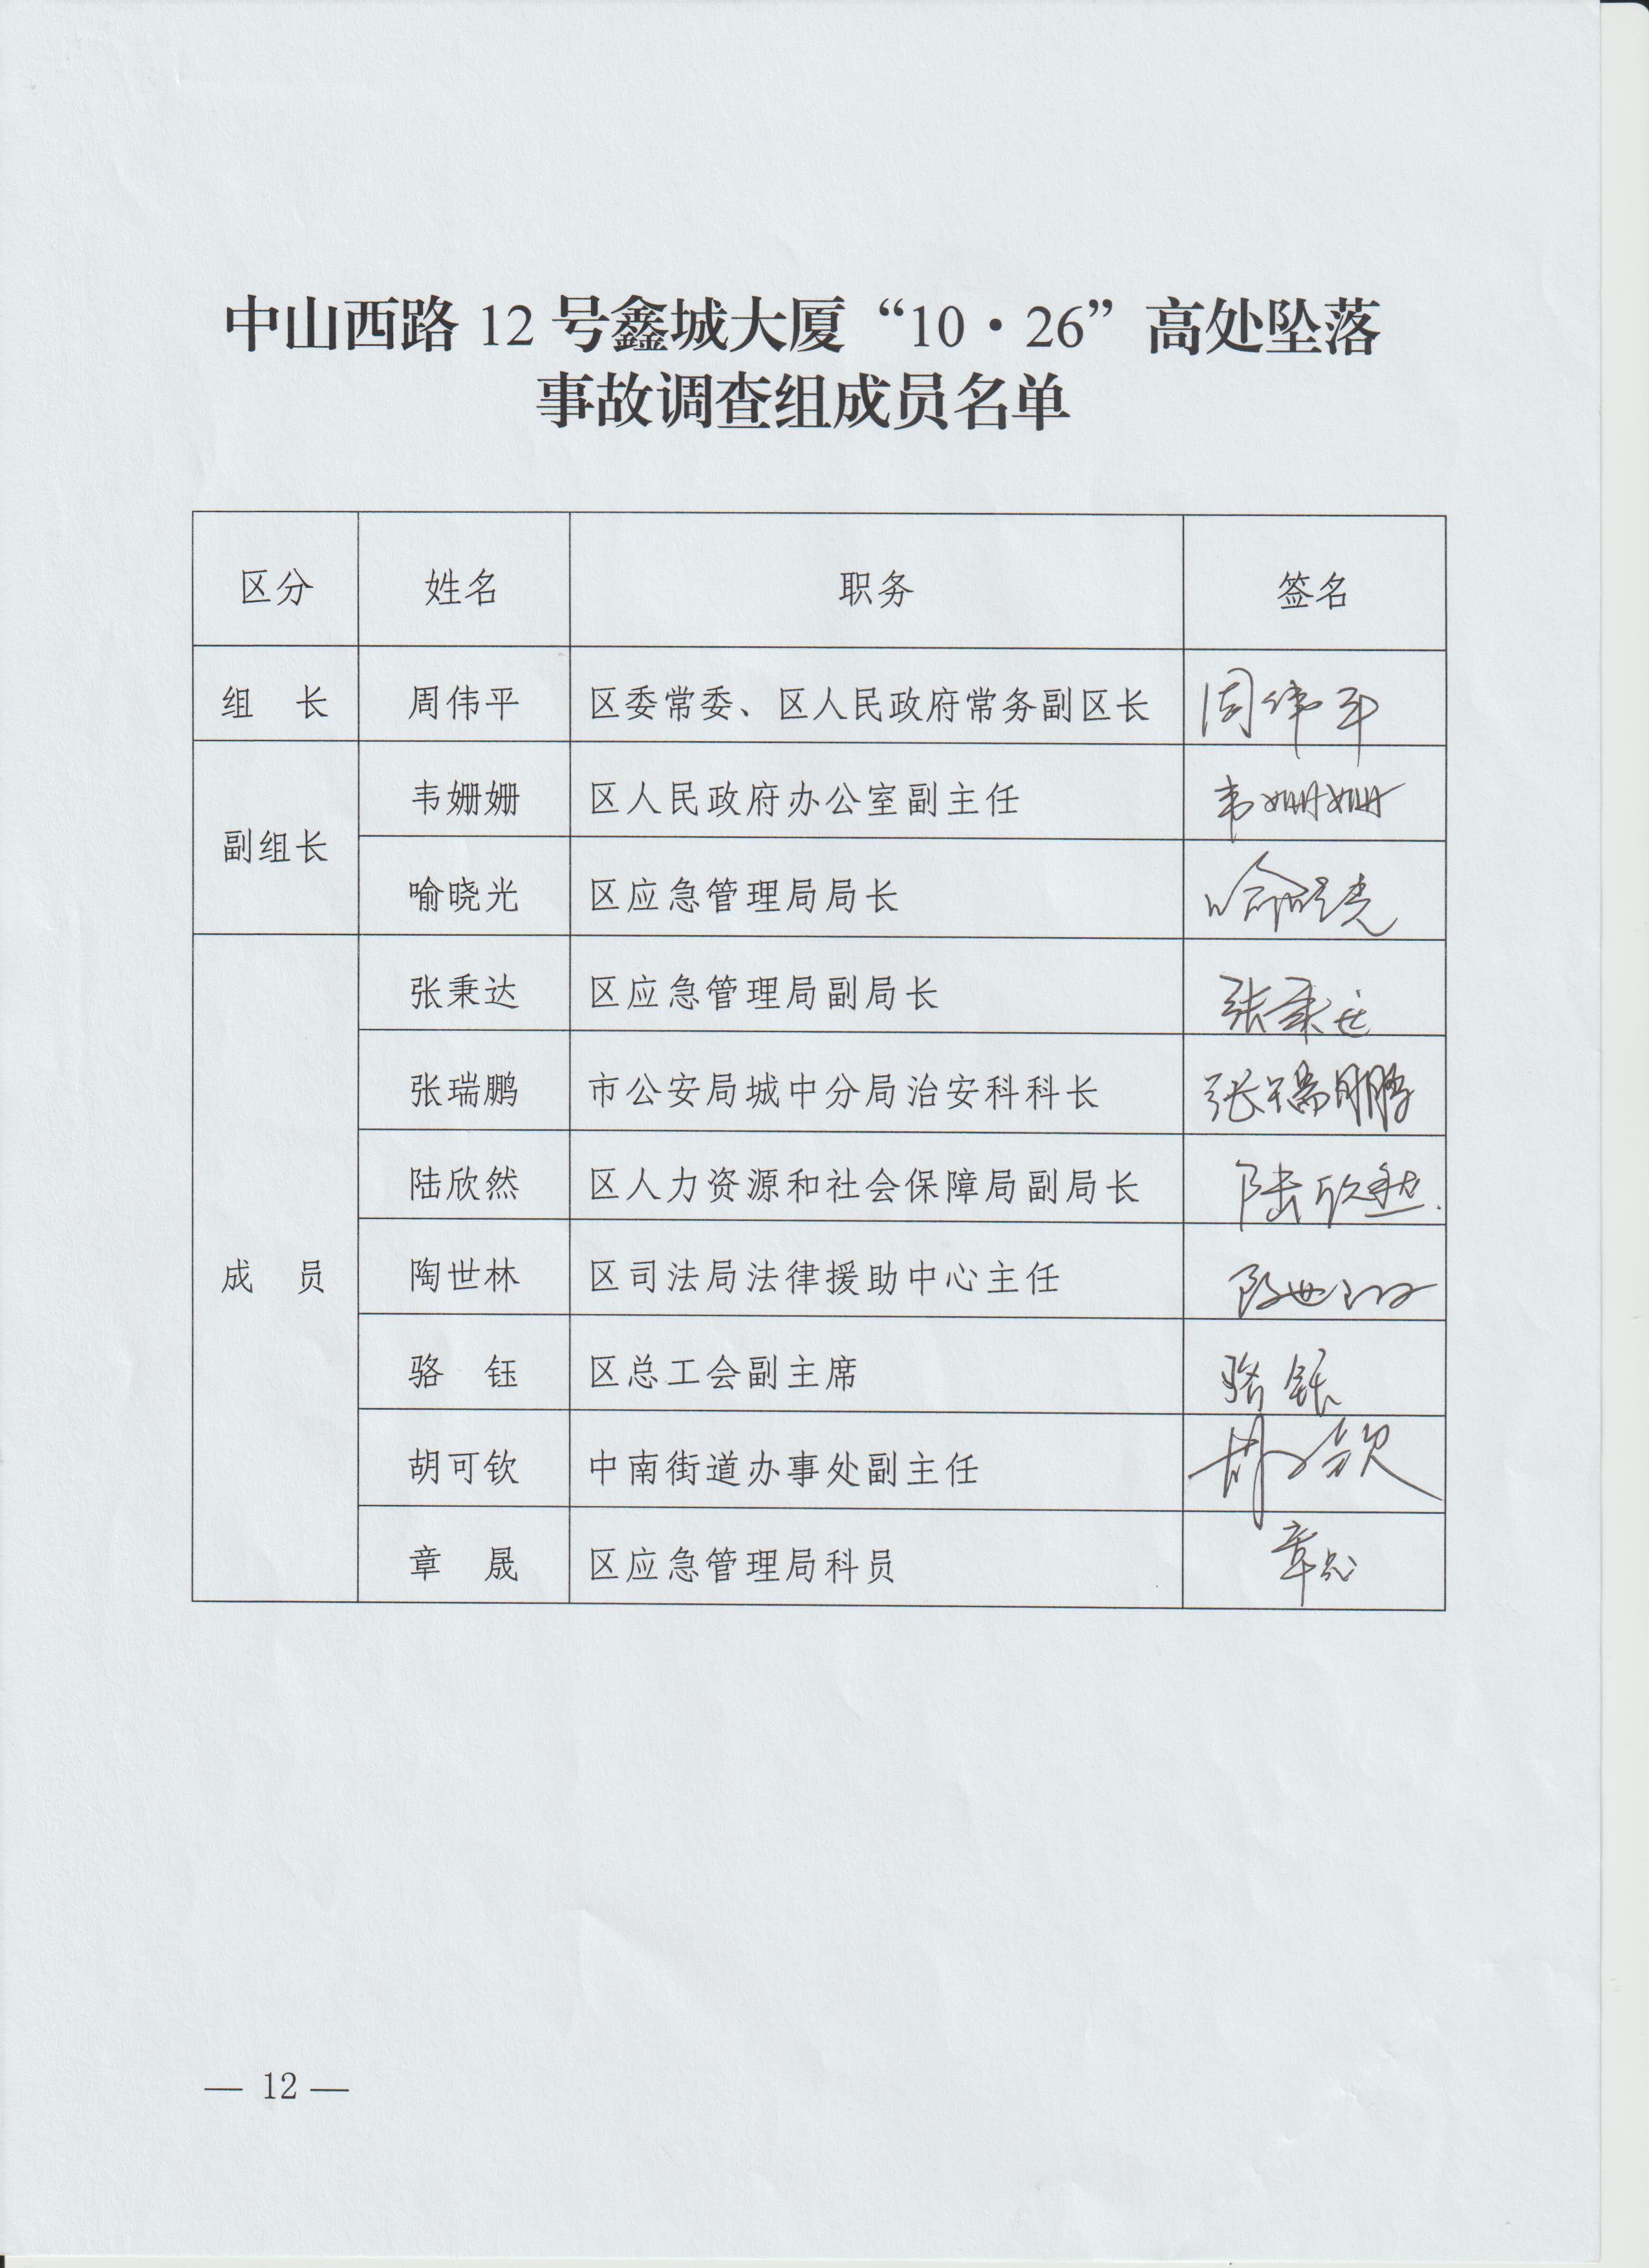 中山西路 12 号鑫城大厦“10·26”高处坠落
事故调查组成员名单
区分 姓名 职务 签名
组 长 周伟平 区委常委、区人民政府常务副区长 周伟平
副组长
韦姗姗 区人民政府办公室副主任 韦姗姗
喻晓光 区应急管理局局长 喻晓光
成 员
张秉达 区应急管理局副局长 张秉达
张瑞鹏 市公安局城中分局治安科科长 张瑞鹏
陆欣然 区人力资源和社会保障局副局长 陆欣然
陶世林 区司法局法律援助中心主任 陶世林
骆 钰 区总工会副主席 骆钰
胡可钦 中南街道办事处副主任 胡可钦
章 晟 区应急管理局科员 章晟
— 12 —